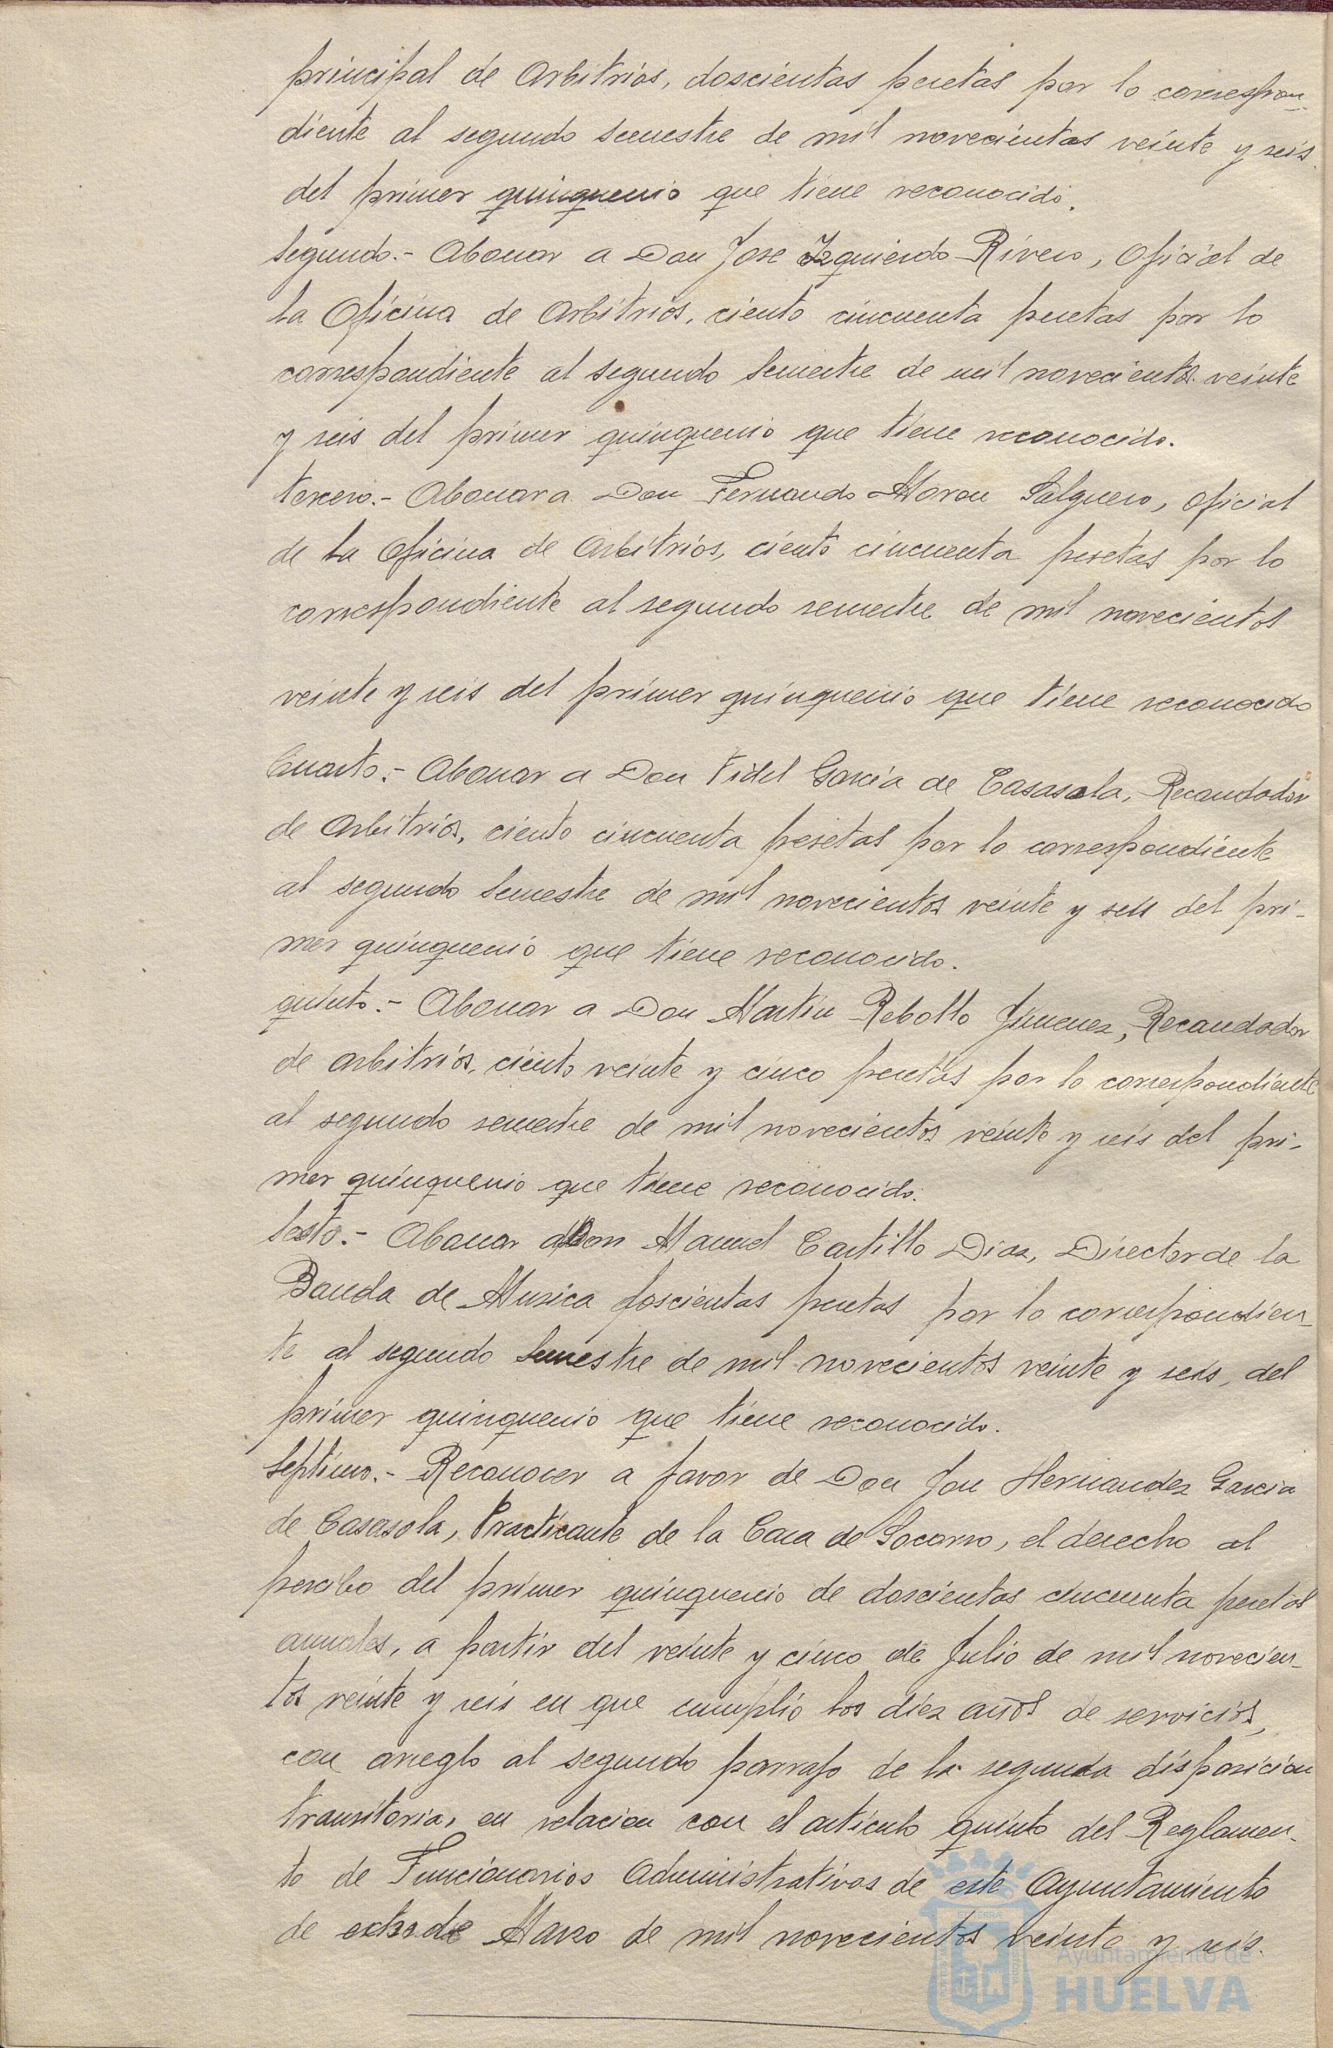 principal de Arbitrios, doscientas pesetas por lo correspon-
diente al segundo semestre de mil novecientos veinte y seis
del primer quinquenio que tiene reconocido.
Segundo.- Abonar a Don Jose Izquierdo Rivero, Oficial de
la Oficina de Arbitrios, ciento cincuenta pesetas por lo
correspondiente al segundo semestre de mil novecientos veinte
y seis del primer quinquenio que tiene reconocido.
tercero.- Abonar a Don Fernando Moron Salguero, Oficial
de la Oficina de Arbitrios, ciento cincuenta pesetas por lo
correspondiente al segundo semestre de mil novecientos
veinte y seis del primer quinquenio que tiene reconocido
Cuarto.- Abonar a Don Fidel Garcia de Casasola, Recaudador
de Arbitrios, ciento cincuenta pesetas por lo correspondiente
al segundo semestre de mil novecientos veinte y seis del pri-
mer quinquenio que tiene reconocido.
quinto.- Abonar a Don Martin Rebollo Jimenez, Recaudador
de arbitrios, ciento veinte y cinco pesetas por lo correspondiente
al segundo semestre de mil novecientos veinte y seis del pri-
mer quinquenio que tiene reconocido.
Sexto.- Abonar a Don Manuel Castillo Diaz, Director de la
Banda de Musica doscientas pesetas por lo correspondien-
te al segundo semestre de mil novecientos veinte y seis, del
primer quinquenio que tiene reconocido.
Septimo.- Reconocer a favor de Don Jose Hernandez Garcia
de Casasola, Practicante de la Casa de Socorro, el derecho al
percibo del primer quinquenio de doscientas cincuenta pesetas
anuales, a partir del veinte y cinco de Julio de mil novecien-
tos veinte y seis en que cumplió los diez años de servicios,
con arreglo al segundo parrafo de la segunda disposicion
transitoria, en relacion con el articulo quinto del Reglamen-
to de Funcionarios Administrativos de este Ayuntamiento
de ocho de Marzo de mil novecientos veinte y seis.
Ayuntamiento de
HUELVA